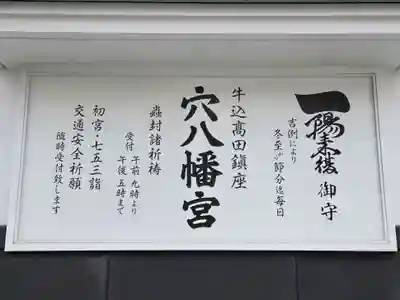 一陽来復 御守
吉例により
冬至より節分迄毎日
牛込高田鎮座
穴八幡宮
蟲封諸祈祷
受付
午前九時より
午後五時まで
初宮・七五三詣
交通安全祈願
随時受付致します